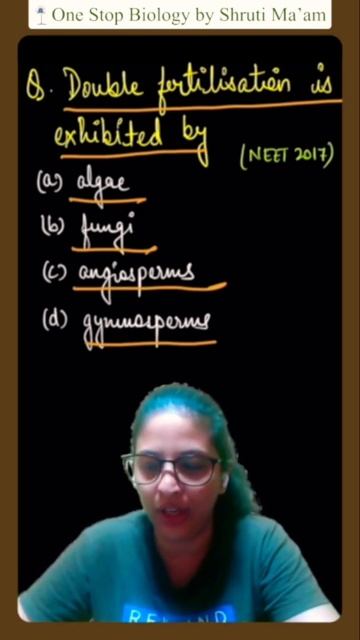 One Stop Biology by Shruti Ma'am
Q. Double fertilisation is
exhibited by
(NEET 2017)
(a) algae
(b) fungi
(c) angiosperms
(d) gymnosperms